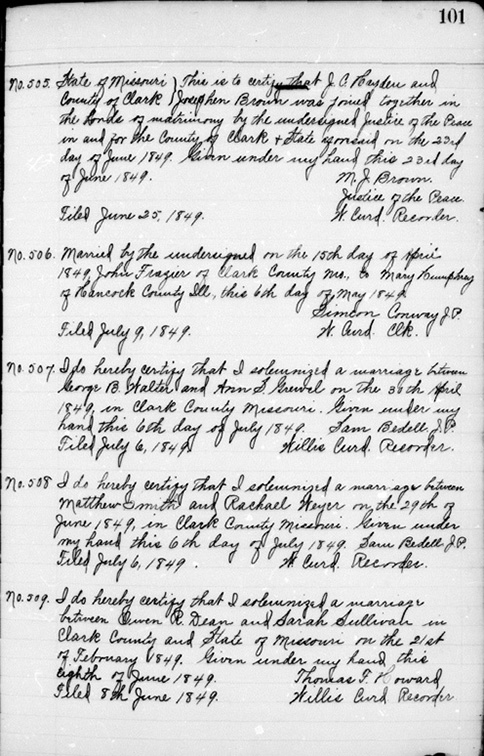 101
No. 505. State of Missouri } This is to certify that J. C. Hayden and
County of Clark } Josephen Brown was joined together in
the bonds of matrimony by the undersigned Justice of the Peace
in and for the County of Clark & State aforesaid on the 23rd
day of June 1849. Given under my hand this 23rd day
of June 1849. M. J. Brown.
Justice of the Peace.
Filed June 25, 1849. W. Curd. Recorder.
No. 506. Married by the undersigned on the 15th day of April
1849, John Frazier of Clark County Mo., to Mary Humphrey
of Hancock County Ill., this 6th day of May 1849.
Simeon Conway J.P.
Filed July 9, 1849. W. Curd. Clk.
No. 507. I do hereby certify that I solemnized a marriage between
George B. Walter and Ann S. on the 30th April
1849, in Clark County Missouri. Given under my
hand this 6th day of July 1849. Sam Bedell, J.P.
Filed July 6, 1849. Willis Curd. Recorder.
No. 508 I do hereby certify that I solemnized a marriage between
Matthew Smith and Rachael Weyer on the 29th of
June 1849, in Clark County Missouri. Given under
my hand this 6th day of July 1849. Sam Bedell J.P.
Filed July 6, 1849. W. Curd. Recorder.
No. 509. I do hereby certify that I solemnized a marriage
between Owen R. Dean and Sarah Sullivan in
Clark County and State of Missouri on the 21st
of February 1849. Given under my hand this
eighth of June 1849. Thomas F. Howard
Filed 8th June 1849. Willis Curd Recorder